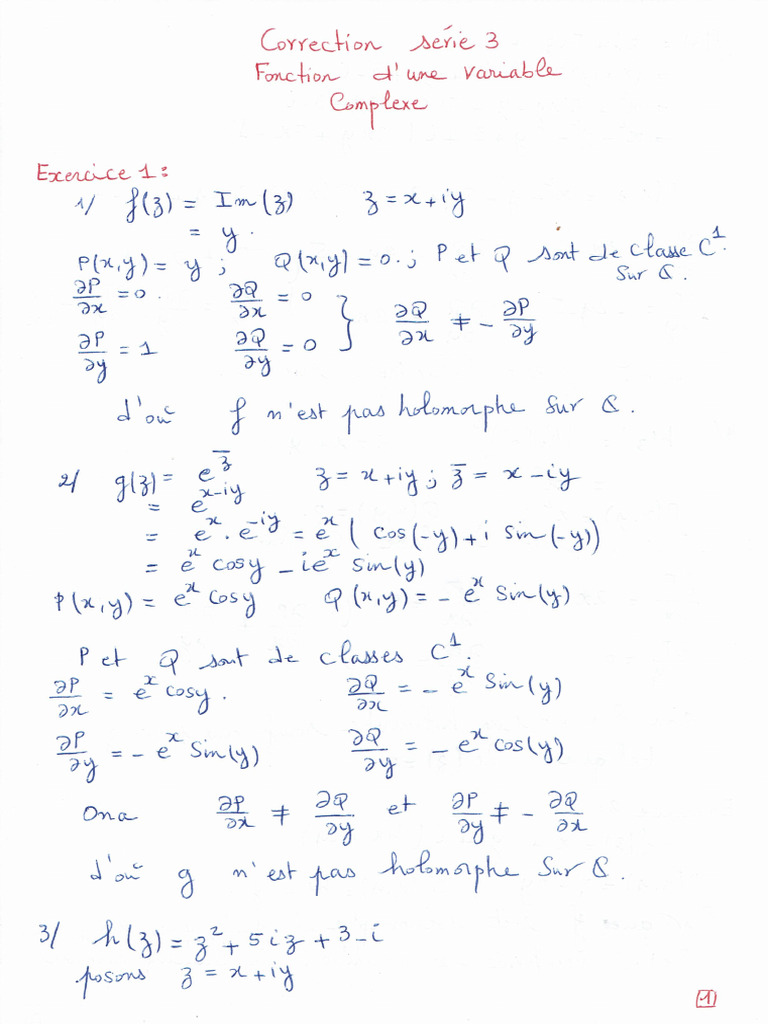 Correction série 3
Fonction d'une variable
Complexe
Exercice 1:
1/ f(z) = Im(z) z = x+iy
= y.
P(x,y) = y ; Q(x,y) = 0. ; P et Q sont de classe C¹.
sur ℂ.
∂P/∂x = 0. ∂Q/∂x = 0
∂P/∂y = 1 ∂Q/∂y = 0 } ∂Q/∂x ≠ - ∂P/∂y
d'où f n'est pas holomorphe sur ℂ.
2/ g(z) = e^z̄ z = x+iy ; z̄ = x-iy
= e^(x-iy)
= e^x . e^(-iy) = e^x ( cos(-y) + i sin(-y))
= e^x cosy - ie^x sin(y)
P(x,y) = e^x cosy Q(x,y) = - e^x sin(y)
P et Q sont de classes C¹.
∂P/∂x = e^x cosy. ∂Q/∂x = - e^x sin(y)
∂P/∂y = - e^x sin(y) ∂Q/∂y = - e^x cos(y)
Ona ∂P/∂x ≠ ∂Q/∂y et ∂P/∂y ≠ - ∂Q/∂x
d'où g n'est pas holomorphe sur ℂ.
3/ h(z) = z² + 5iz + 3-i
posons z = x+iy
1